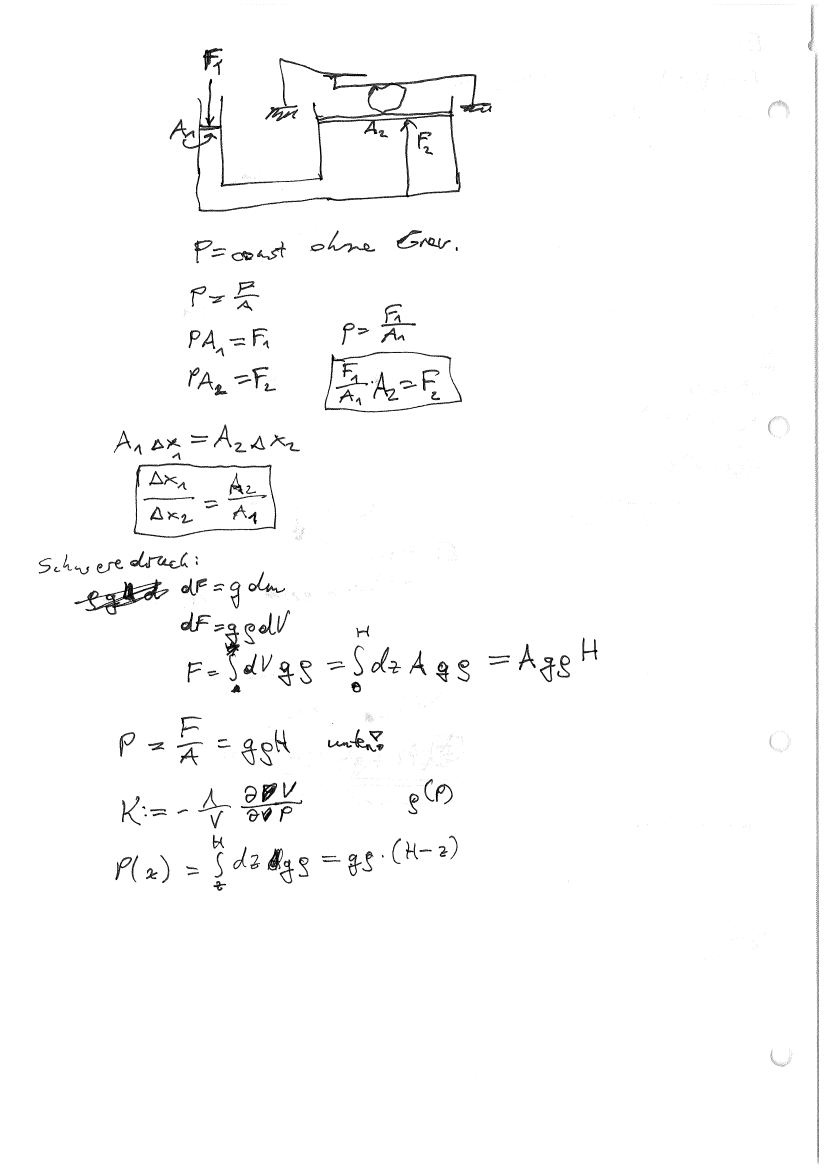 F₁
A₁
A₂
F₂
P = const ohne Grav.
P = F/A
PA₁ = F₁
P = F₁/A₁
PA₂ = F₂
F₁/A₁ · A₂ = F₂
A₁ Δx₁ = A₂ Δx₂
Δx₁/Δx₂ = A₂/A₁
Schweredruck:
dF = g dm
dF = gρdV
F = ∫dV gρ = ∫₀ᴴ dz A gρ = A gρ H
P = F/A = gρH unten
K := - 1/V ∂V/∂P ρ(P)
P(z) = ∫_z^H dz gρ = gρ·(H-z)